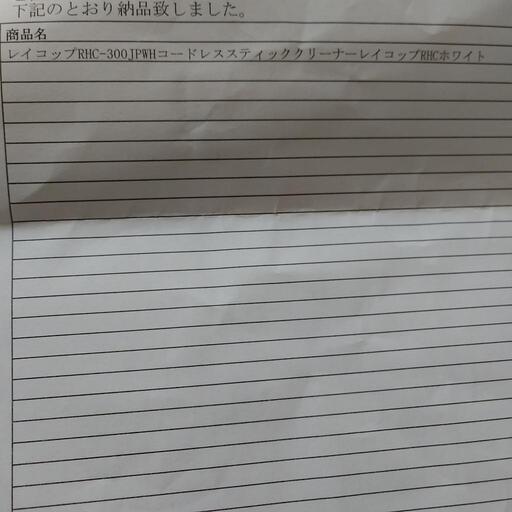 下記のとおり納品致しました。
商品名
レイコップRHC-300JPWHコードレススティッククリーナーレイコップRHCホワイト